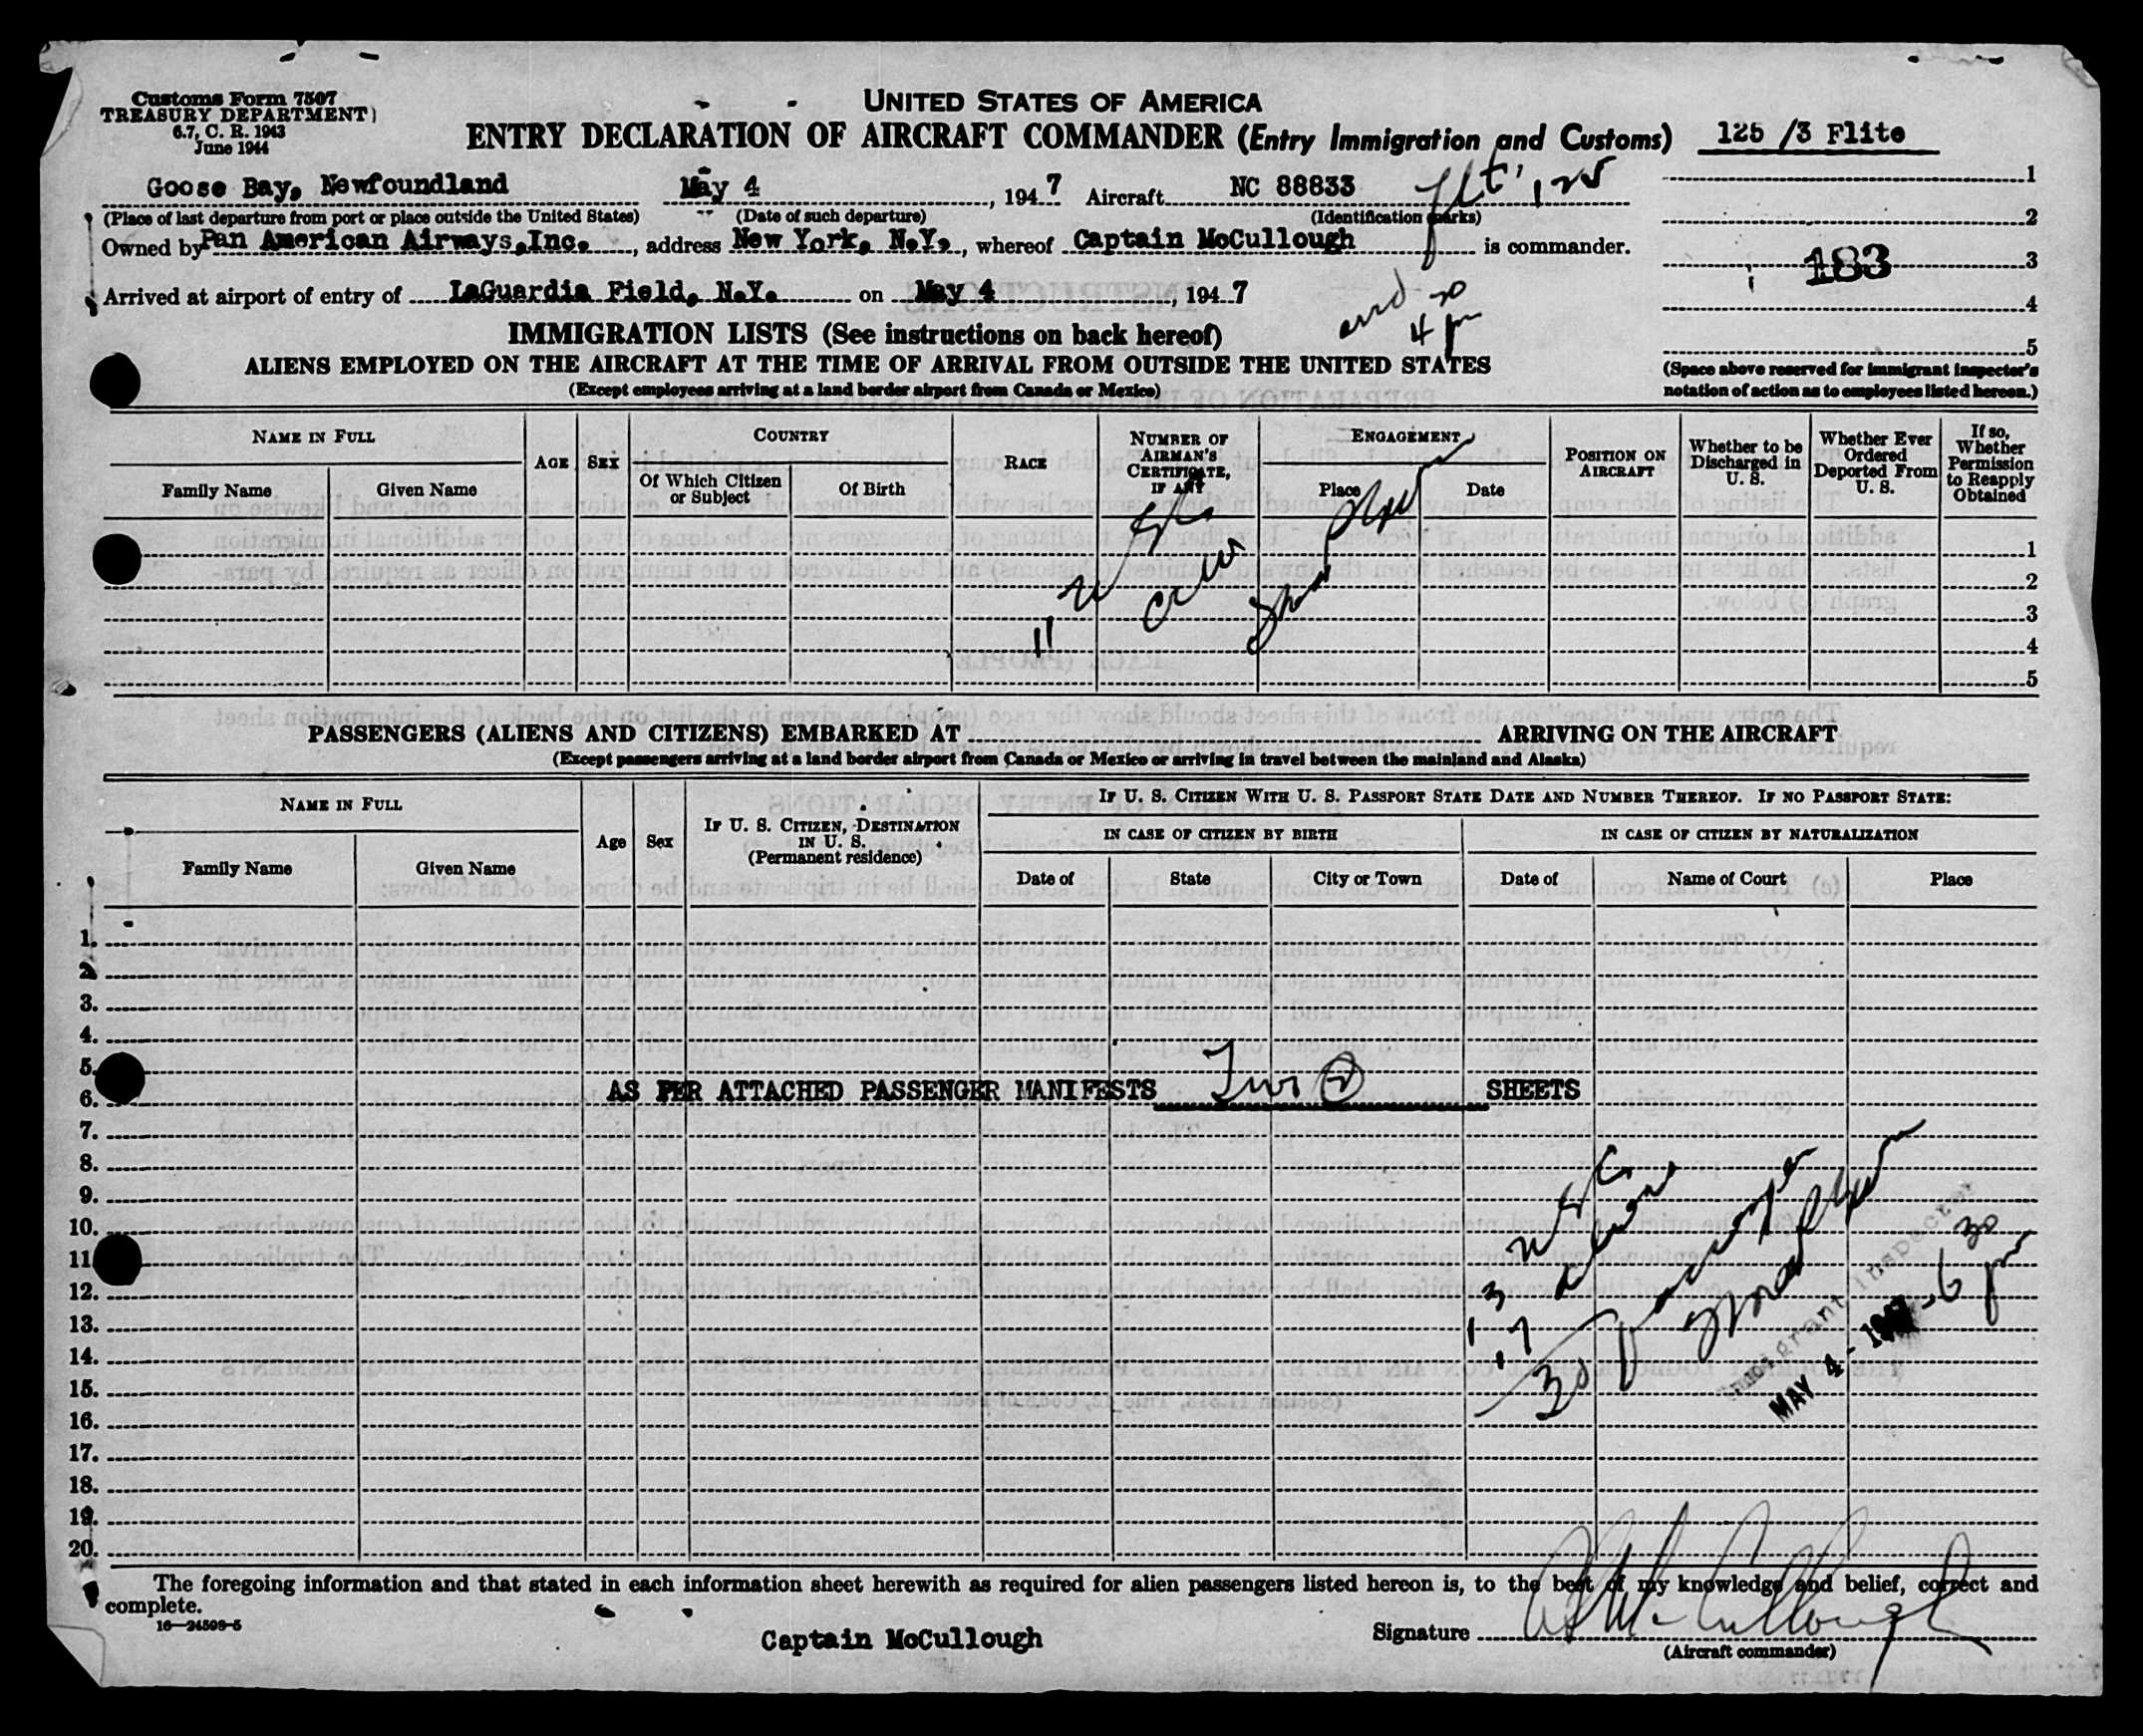 Customs Form 7507
TREASURY DEPARTMENT)
6.7, C. R. 1943
June 1944
UNITED STATES OF AMERICA
ENTRY DECLARATION OF AIRCRAFT COMMANDER (Entry Immigration and Customs)
125 /3 Flite
Goose Bay, Newfoundland May 4, 1947 Aircraft NC 88833 flt. 125
(Place of last departure from port or place outside the United States) (Date of such departure) (Identification marks)
Owned by Pan American Airways, Inc., address New York, N.Y., whereof Captain McCullough is commander.
Arrived at airport of entry of LaGuardia Field, N.Y. on May 4, 1947
4 30 pm
1
2
183 3
4
5
(Space above reserved for immigrant inspector's
notation of action as to employees listed hereon.)
IMMIGRATION LISTS (See instructions on back hereof)
ALIENS EMPLOYED ON THE AIRCRAFT AT THE TIME OF ARRIVAL FROM OUTSIDE THE UNITED STATES
(Except employees arriving at a land border airport from Canada or Mexico)
NAME IN FULL
Family Name
Given Name
AGE
SEX
COUNTRY
Of Which Citizen or Subject
Of Birth
RACE
NUMBER OF AIRMAN'S CERTIFICATE, IF ANY
ENGAGEMENT
Place
Date
POSITION ON AIRCRAFT
Whether to be Discharged in U. S.
Whether Ever Ordered Deported From U. S.
If so, Whether Permission to Reapply Obtained
11 USC
crew
1
2
3
4
5
PASSENGERS (ALIENS AND CITIZENS) EMBARKED AT ARRIVING ON THE AIRCRAFT
(Except passengers arriving at a land border airport from Canada or Mexico or arriving in travel between the mainland and Alaska)
NAME IN FULL
Family Name
Given Name
Age
Sex
IF U. S. CITIZEN, DESTINATION IN U. S.
(Permanent residence)
IF U. S. CITIZEN WITH U. S. PASSPORT STATE DATE AND NUMBER THEREOF. IF NO PASSPORT STATE:
IN CASE OF CITIZEN BY BIRTH
IN CASE OF CITIZEN BY NATURALIZATION
Date of
State
City or Town
Date of
Name of Court
Place
1.
2.
3.
4.
5.
6.
AS PER ATTACHED PASSENGER MANIFESTS Two (2) SHEETS
7.
8.
9.
10.
11.
12.
13.
14.
15.
16.
17.
18.
19.
20.
13 USC
17 aliens
30 passenger
Immigrant Inspector
MAY 4 - 1947 - 6 30 pm
The foregoing information and that stated in each information sheet herewith as required for alien passengers listed hereon is, to the best of my knowledge and belief, correct and
complete.
16—24598-5
Captain McCullough
Signature
(Aircraft commander)